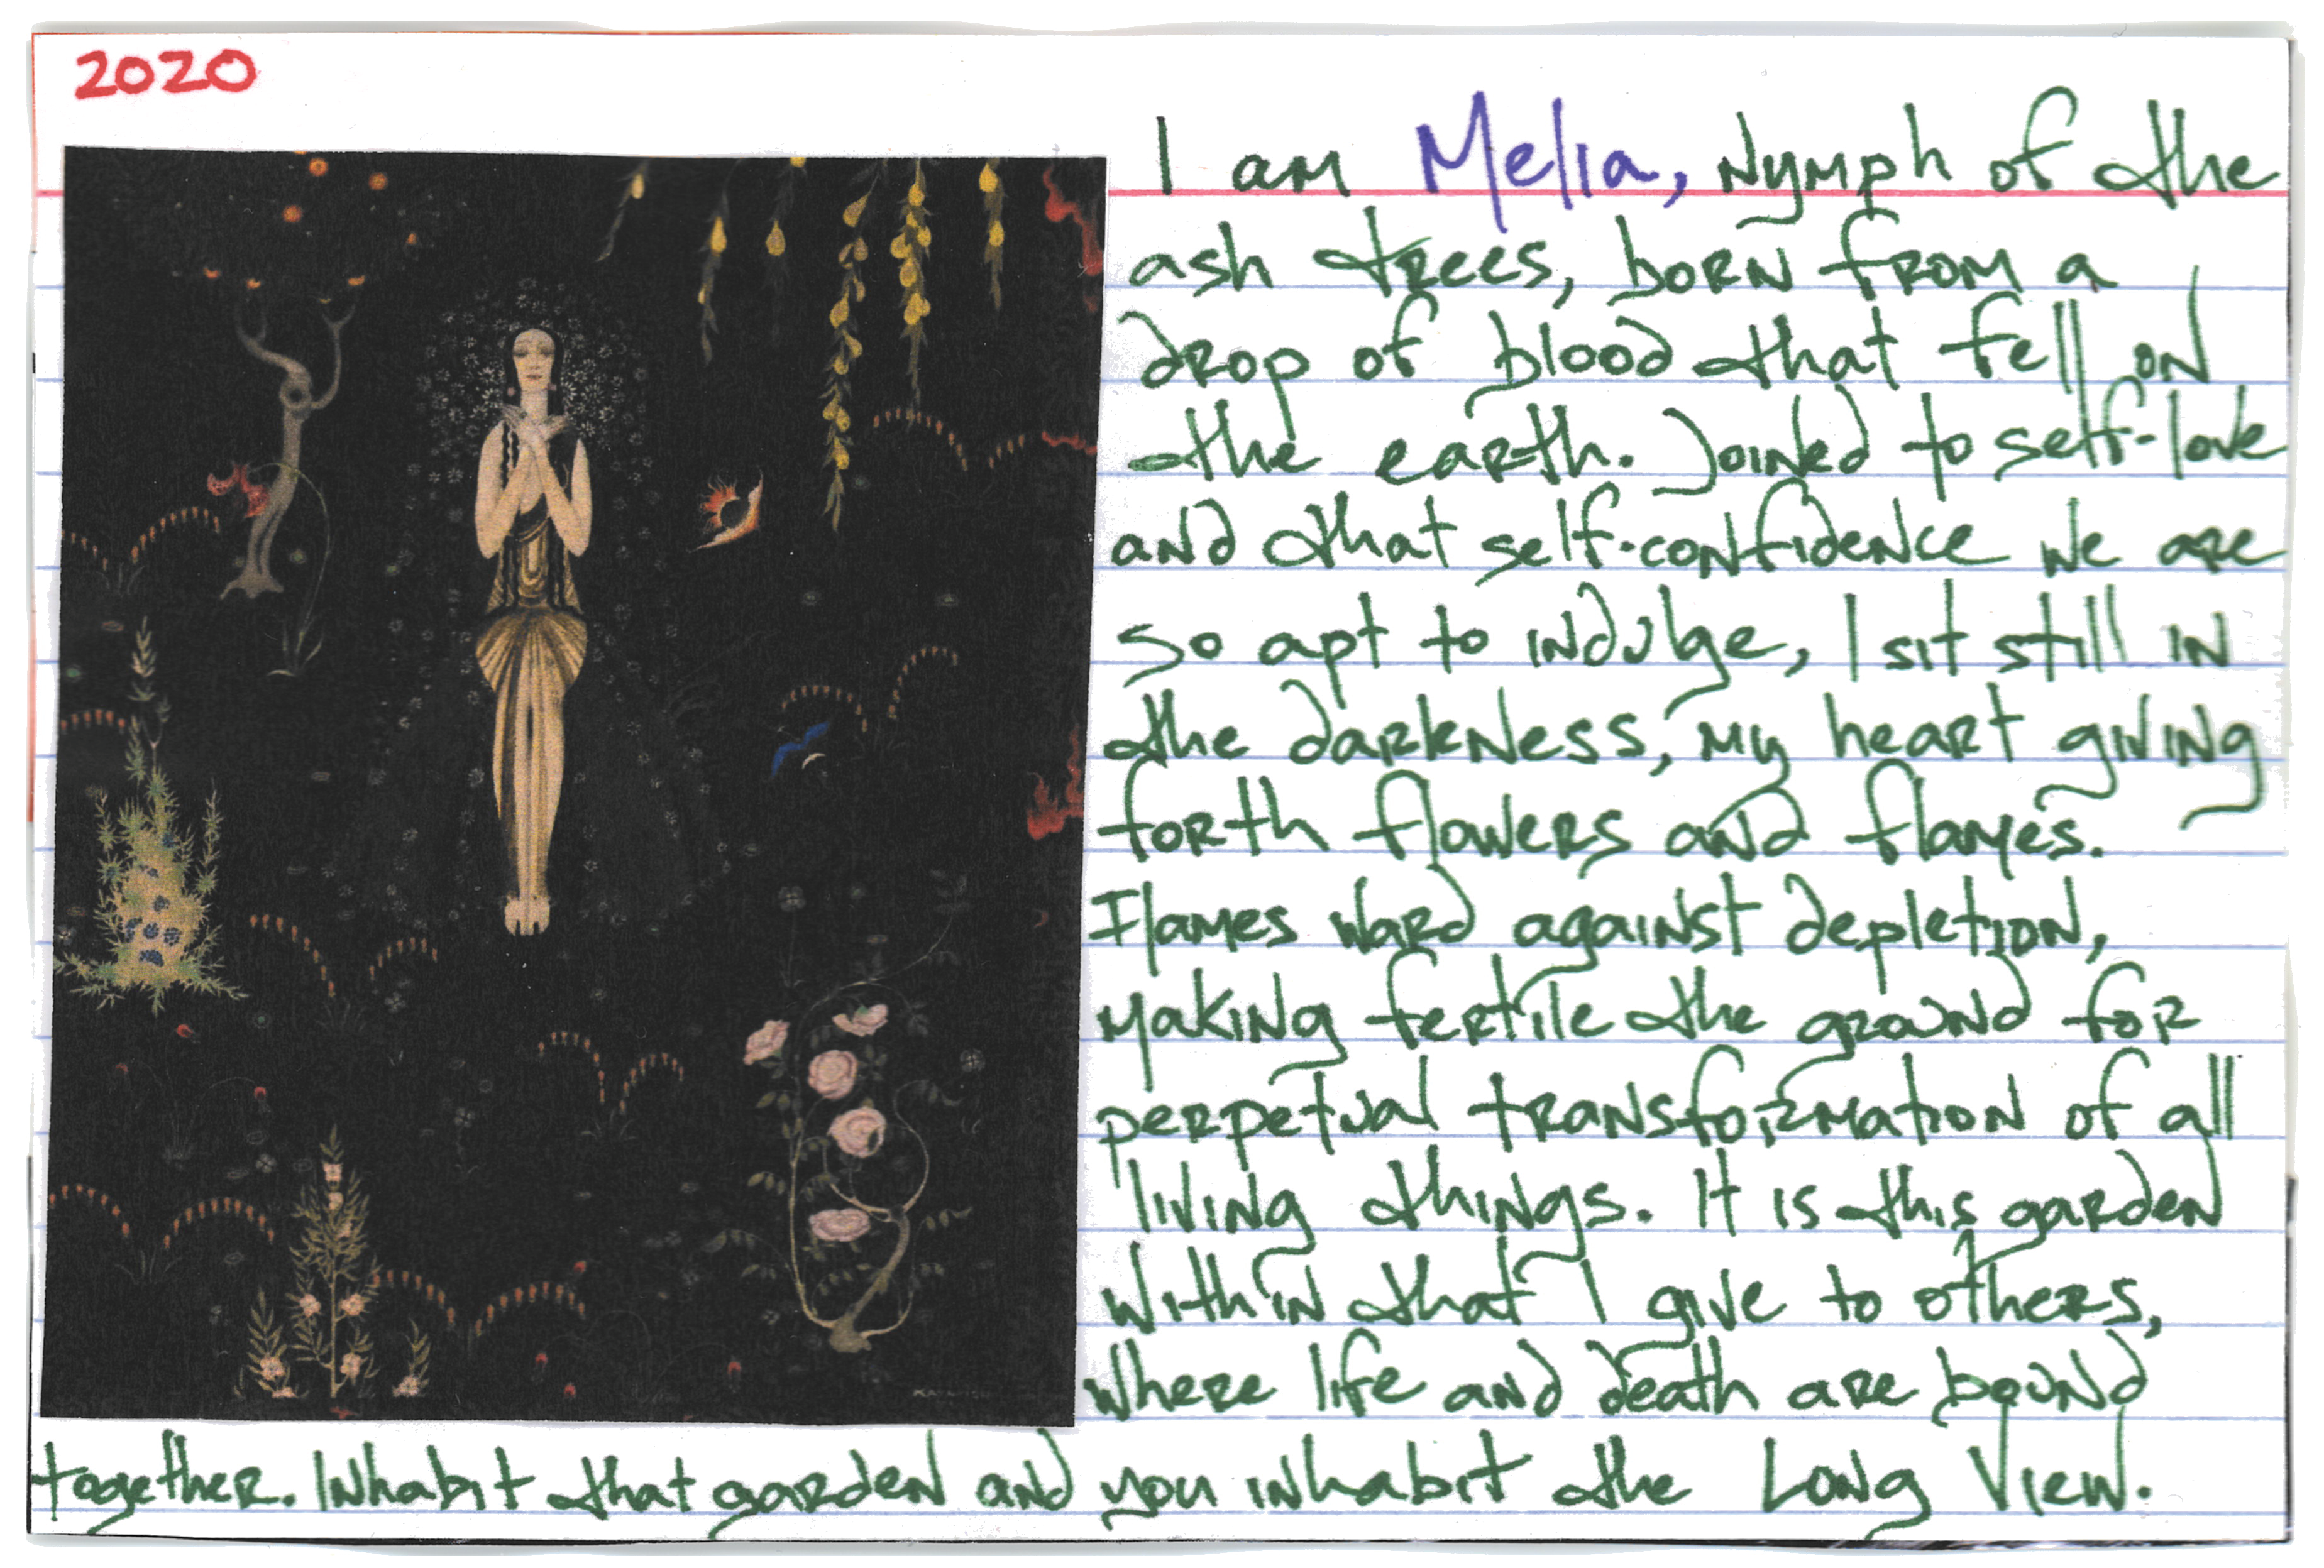 2020
I am Melia, Nymph of the
ash trees, born from a
drop of blood that fell on
the earth. Joined to self-love
and that self-confidence we are
so apt to indulge, I sit still in
the darkness, my heart giving
forth flowers and flames.
Flames ward against depletion,
making fertile the ground for
perpetual transformation of all
living things. It is this garden
within that I give to others,
where life and death are bound
together. Inhabit that garden and you inhabit the Long View.